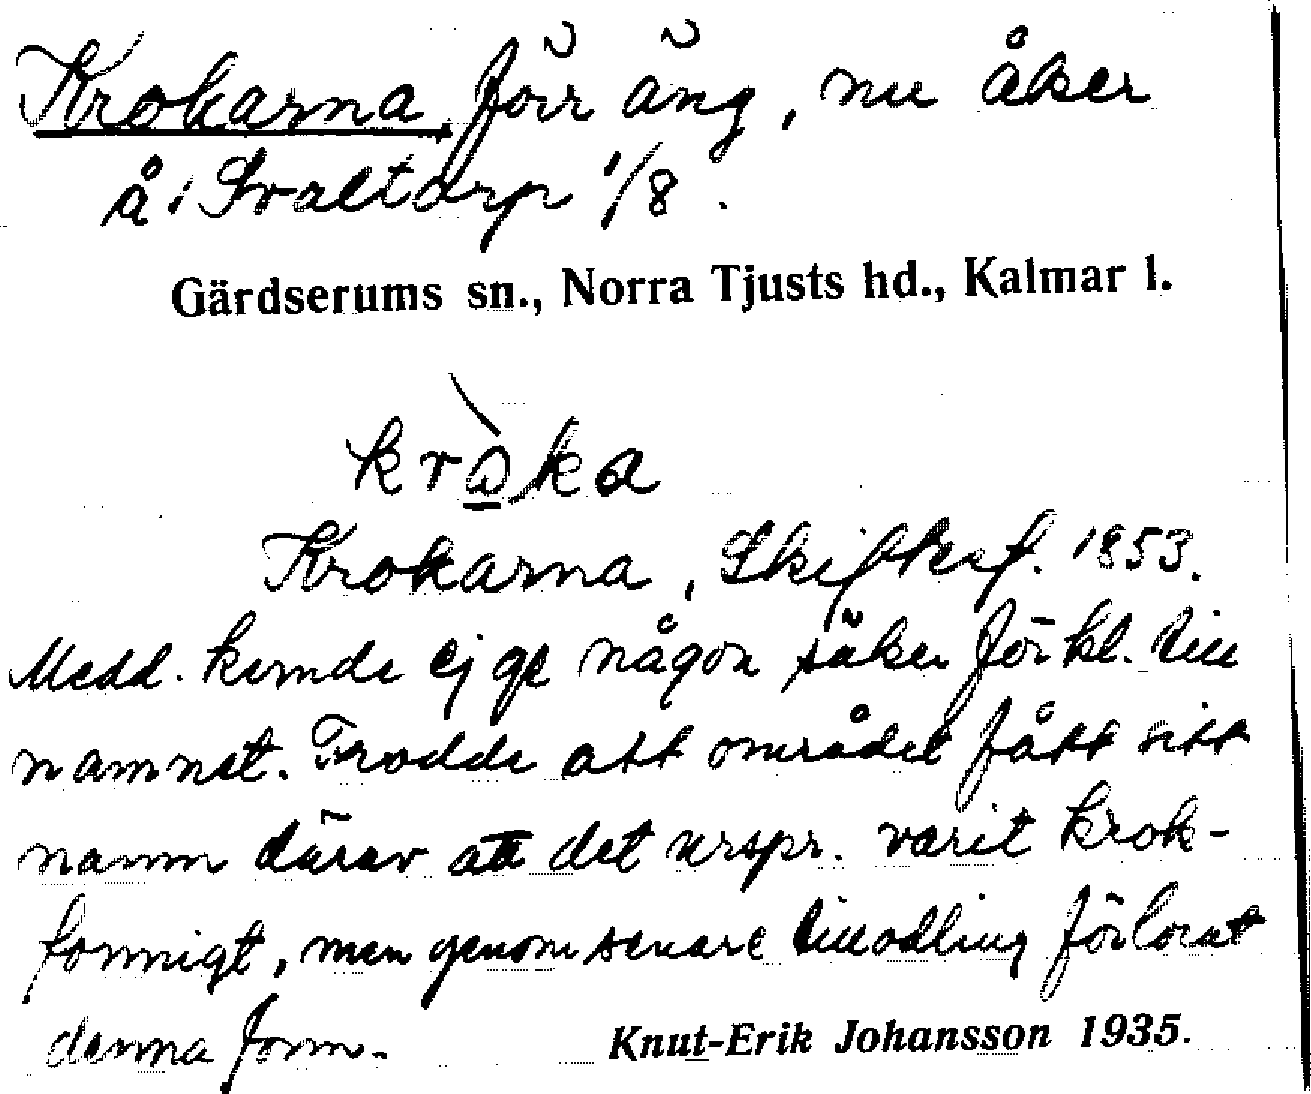 Krokarna, förr äng, nu åker
å Svaltorp 1/8.
Gärdserums sn., Norra Tjusts hd., Kalmar l.
kròka
Krokarna, Skifteskf. 1853.
Medd. kunde ej ge någon säker förkl. till
namnet. Trodde att området fått sitt
namn därav att det urspr. varit krok-
formigt, men genom senare tillodling förlorat
denna form.
Knut-Erik Johansson 1935.